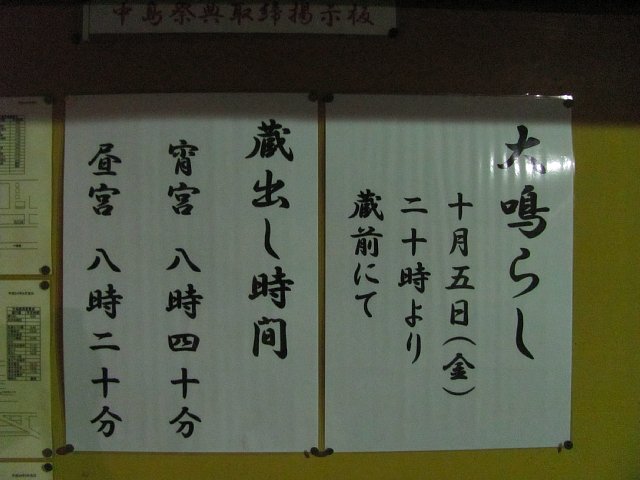 中島祭典取締掲示板
大鳴らし
十月五日(金)
二十時より
蔵前にて
蔵出し時間
宵宮 八時四十分
昼宮 八時二十分